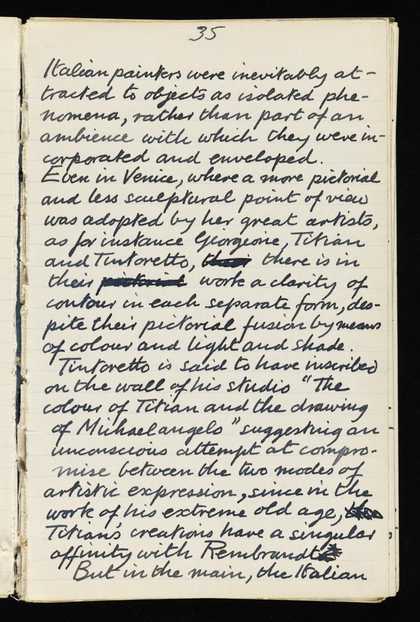 35
Italian painters were inevitably at-
tracted to objects as isolated phe-
nomena, rather than part of an
ambience with which they were in-
corporated and enveloped.
Even in Venice, where a more pictorial
and less sculptural point of view
was adopted by her great artists,
as for instance Georgione, Titian
and Tintoretto, their there is in
their pictorial work a clarity of
contour in each separate form, des-
pite their pictorial fusion by means
of colour and light and shade.
Tintoretto is said to have inscribed
on the wall of his studio "The
colour of Titian and the drawing
of Michaelangelo" suggesting an
unconscious attempt at compro-
mise between the two modes of
artistic expression, since in the
work of his extreme old age,
Titian's creations have a singular
affinity with Rembrandt
But in the main, the Italian